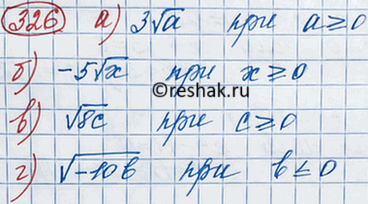 326 а) 3√a при a ≥ 0
б) -5√x при x ≥ 0
© reshak.ru
в) √8c при c ≥ 0
г) √-10b при b ≤ 0